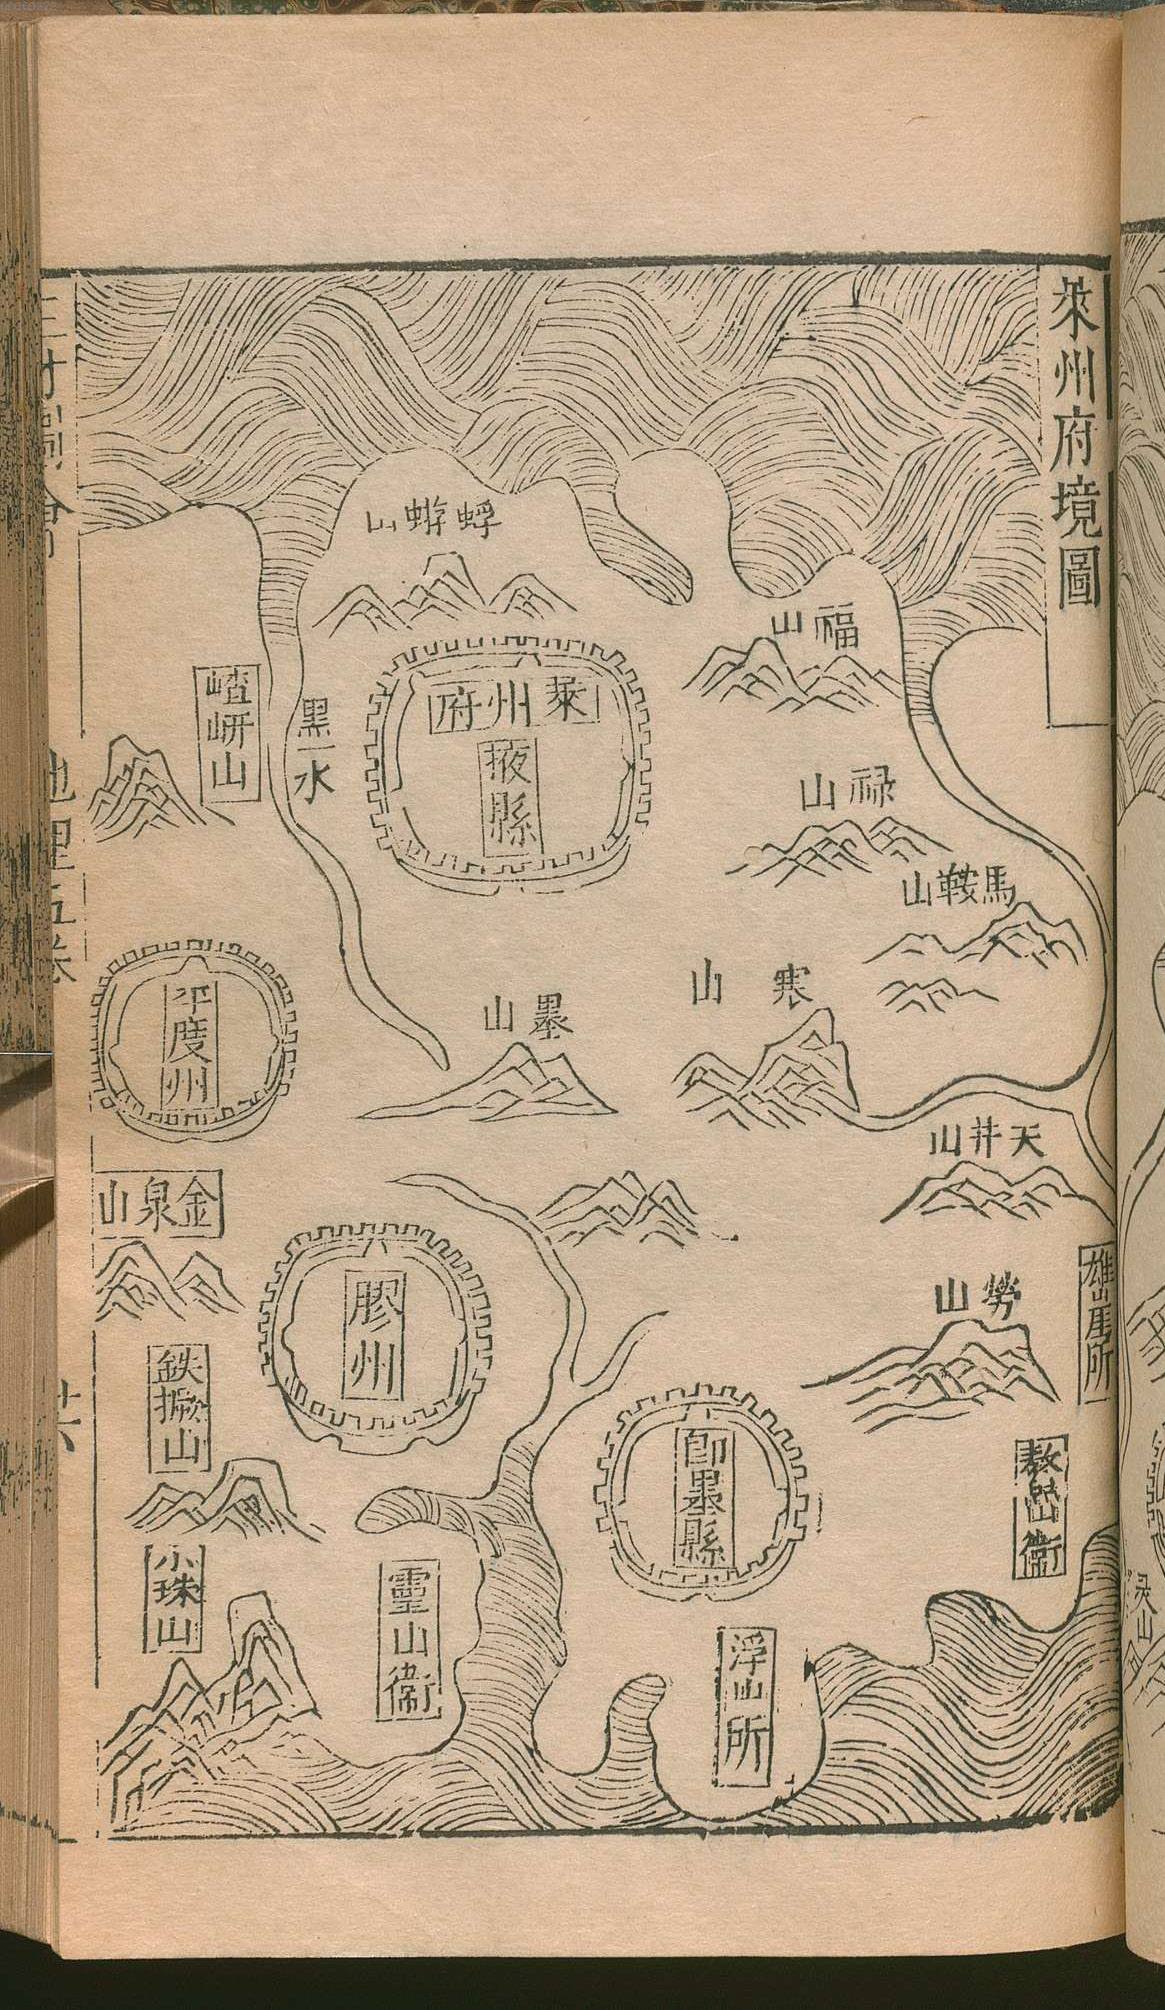 萊州府境圖
蜉蝣山
福山
萊州府
掖縣
嵖岈山
黑水
禄山
馬鞍山
寒山
墨山
平度州
天井山
金泉山
膠州
勞山
雄崖所
鉄撅山
即墨縣
小珠山
靈山衞
浮山所
三才圖會
地理五卷
廿六